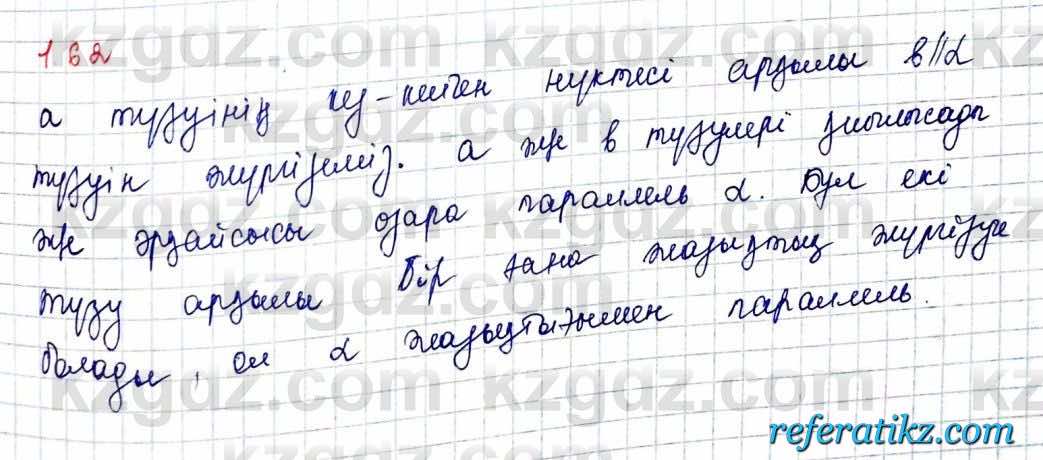 1.62
а түзуінің кез-келген нүктесі арқылы в||α
түзуін жүргіземіз. а және в түзулері қиылысады
және әрқайсысы өзара параллель α. Бұл екі
түзу арқылы бір ғана жазықтық жүргізуге
болады, ол α жазықтығымен параллель.
kzgdz.com
referatikz.com